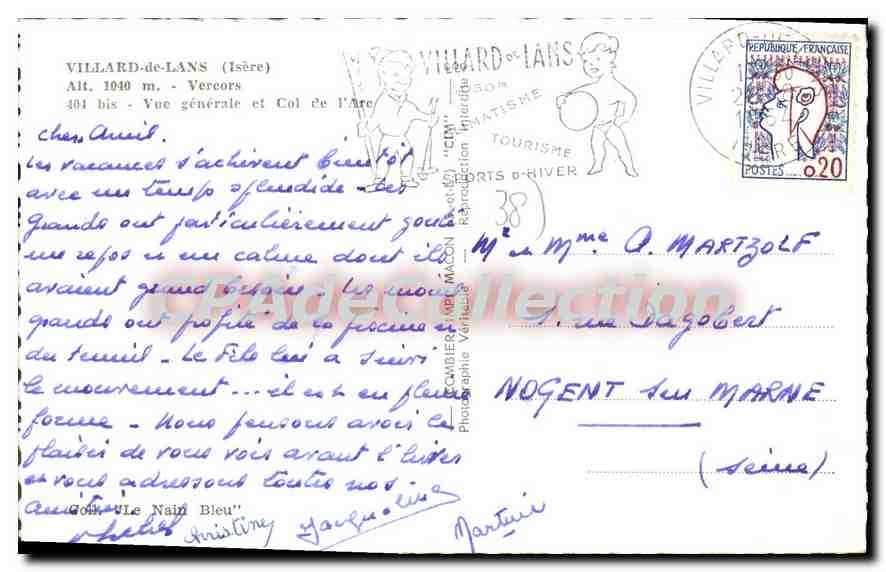 VILLARD-de-LANS (Isère)
Alt. 1040 m. - Vercors
404 bis - Vue générale et Col de l'Arc
VILLARD DE LANS
TOURISME
SPORTS D'HIVER
VILLARD
ISERE
REPUBLIQUE FRANÇAISE
POSTES 0,20
Chers Amis.
Les vacances s'achèvent bientôt
avec un temps splendide - Les
grands ont particulièrement goûté
un repos et un calme dont ils
avaient grand besoin. Les moins
grands ont profité de la piscine et
du tennis - Le Filo lui a suivi
le mouvement ... il est en pleine
forme - Nous pensons avoir le
plaisir de vous voir avant l'hiver
et vous adressons toutes nos
amitiés.
Christine Jacqueline
Martine
Coll. "Le Nain Bleu"
COMBIER IMP. MACON (S.-et-L.) "CIM"
Photographie Véritable - Reproduction Interdite
38
Mr et Mme A. MARTZOLF
1. rue Dagobert
NOGENT sur MARNE
(Seine)
CPAdeCollection